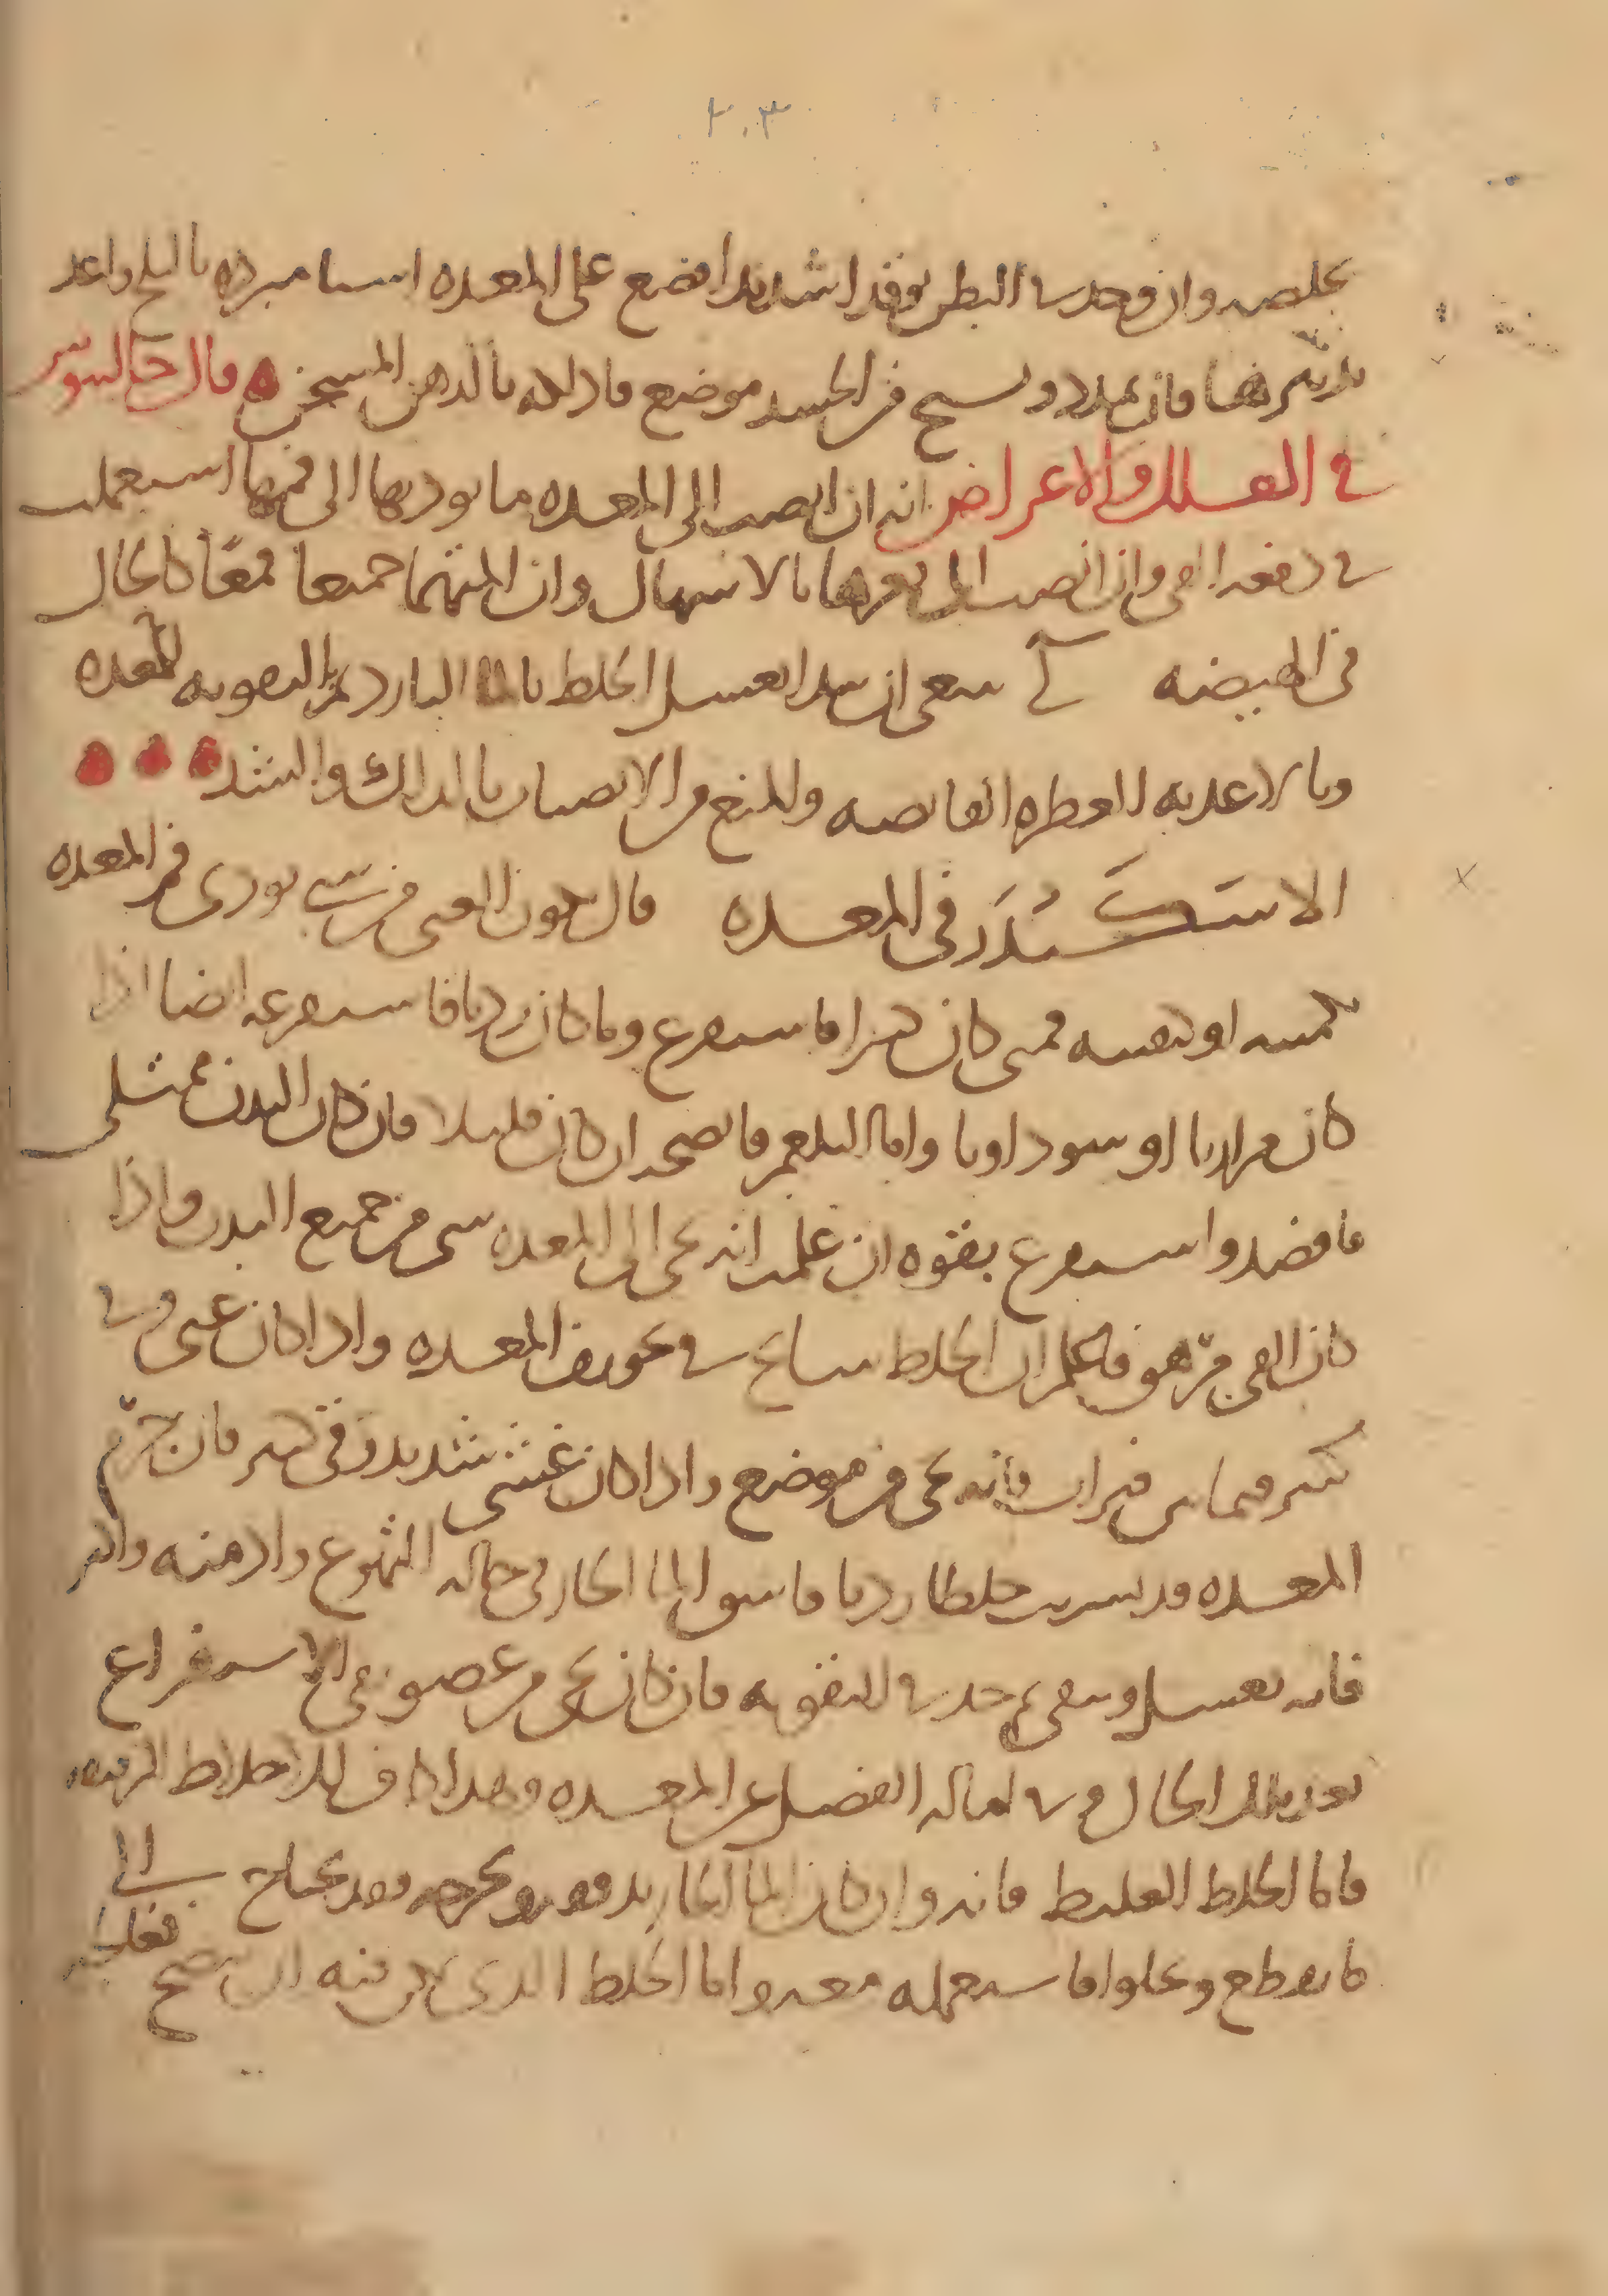 ٢٠٣
يخلصه وان وجد في البطن توقدا شديدا فضع على المعدة اشيا مبرده بالثلج واعد
تدثيرها فان تمدد وتشنج من الجسد موضع فادلكه بالدهن المسخن قال جالينوس
في العلل والاعراض انه ان انصب الى المعده ما يوذيها الى فمها استعملت
في دفعه القي وان انصب الى قعرها بالاسهال وان المتهما جميعا فمعا كالحال
في الهيضه لي ينبغي ان يبدا بغسل الخلط بالما البارد ثم بالتقويه للمعده
وبالاغذيه العطره القابضه وللمنع من الانصباب بالدلك والشد
الاستكندر في المعده قال يكون القي من شي يوذي فم المعده
بكميته او بكيفيته فمتى كان كثيرا فاستفرغ وما كان رديا فاستفرغه ايضا اذا
كان مراريا او سوداويا واما البلغم فانضجه ان كان قليلا فان كان البدن ممتلي
فافصد واستفرغ بقوه ان علمت انه يجي الى المعده شي من جميع البدن واذا
كان القي من هو فاعلم ان الخلط سابح في تجويف المعده واذا كان غثي وقي
كثير فيما بين فترات فانه يجي من موضع واذا كان غشي شديد وقي يسير فان جرم
المعده قد تشربت خلطا رديا فاسق الما الحار في حاله التهوع وادمنه واكثر
فانه يغسل وينقي ثم خذ في التقويه فان كان يجي من عضو ففي الاستفراغ
بعد تلك الحال وفي اماله الفضل عن المعده وهذا كاف للاخلاط الرقيقه
فاما الخلط الغليظ فانه وان كان الما الحار يدفعه ويخرجه فقد يحتاج الى
ما يقطع ويجلوا فاستعمله معه واما الخلط الذي يمكن فيه ان ينضج
فعالجه